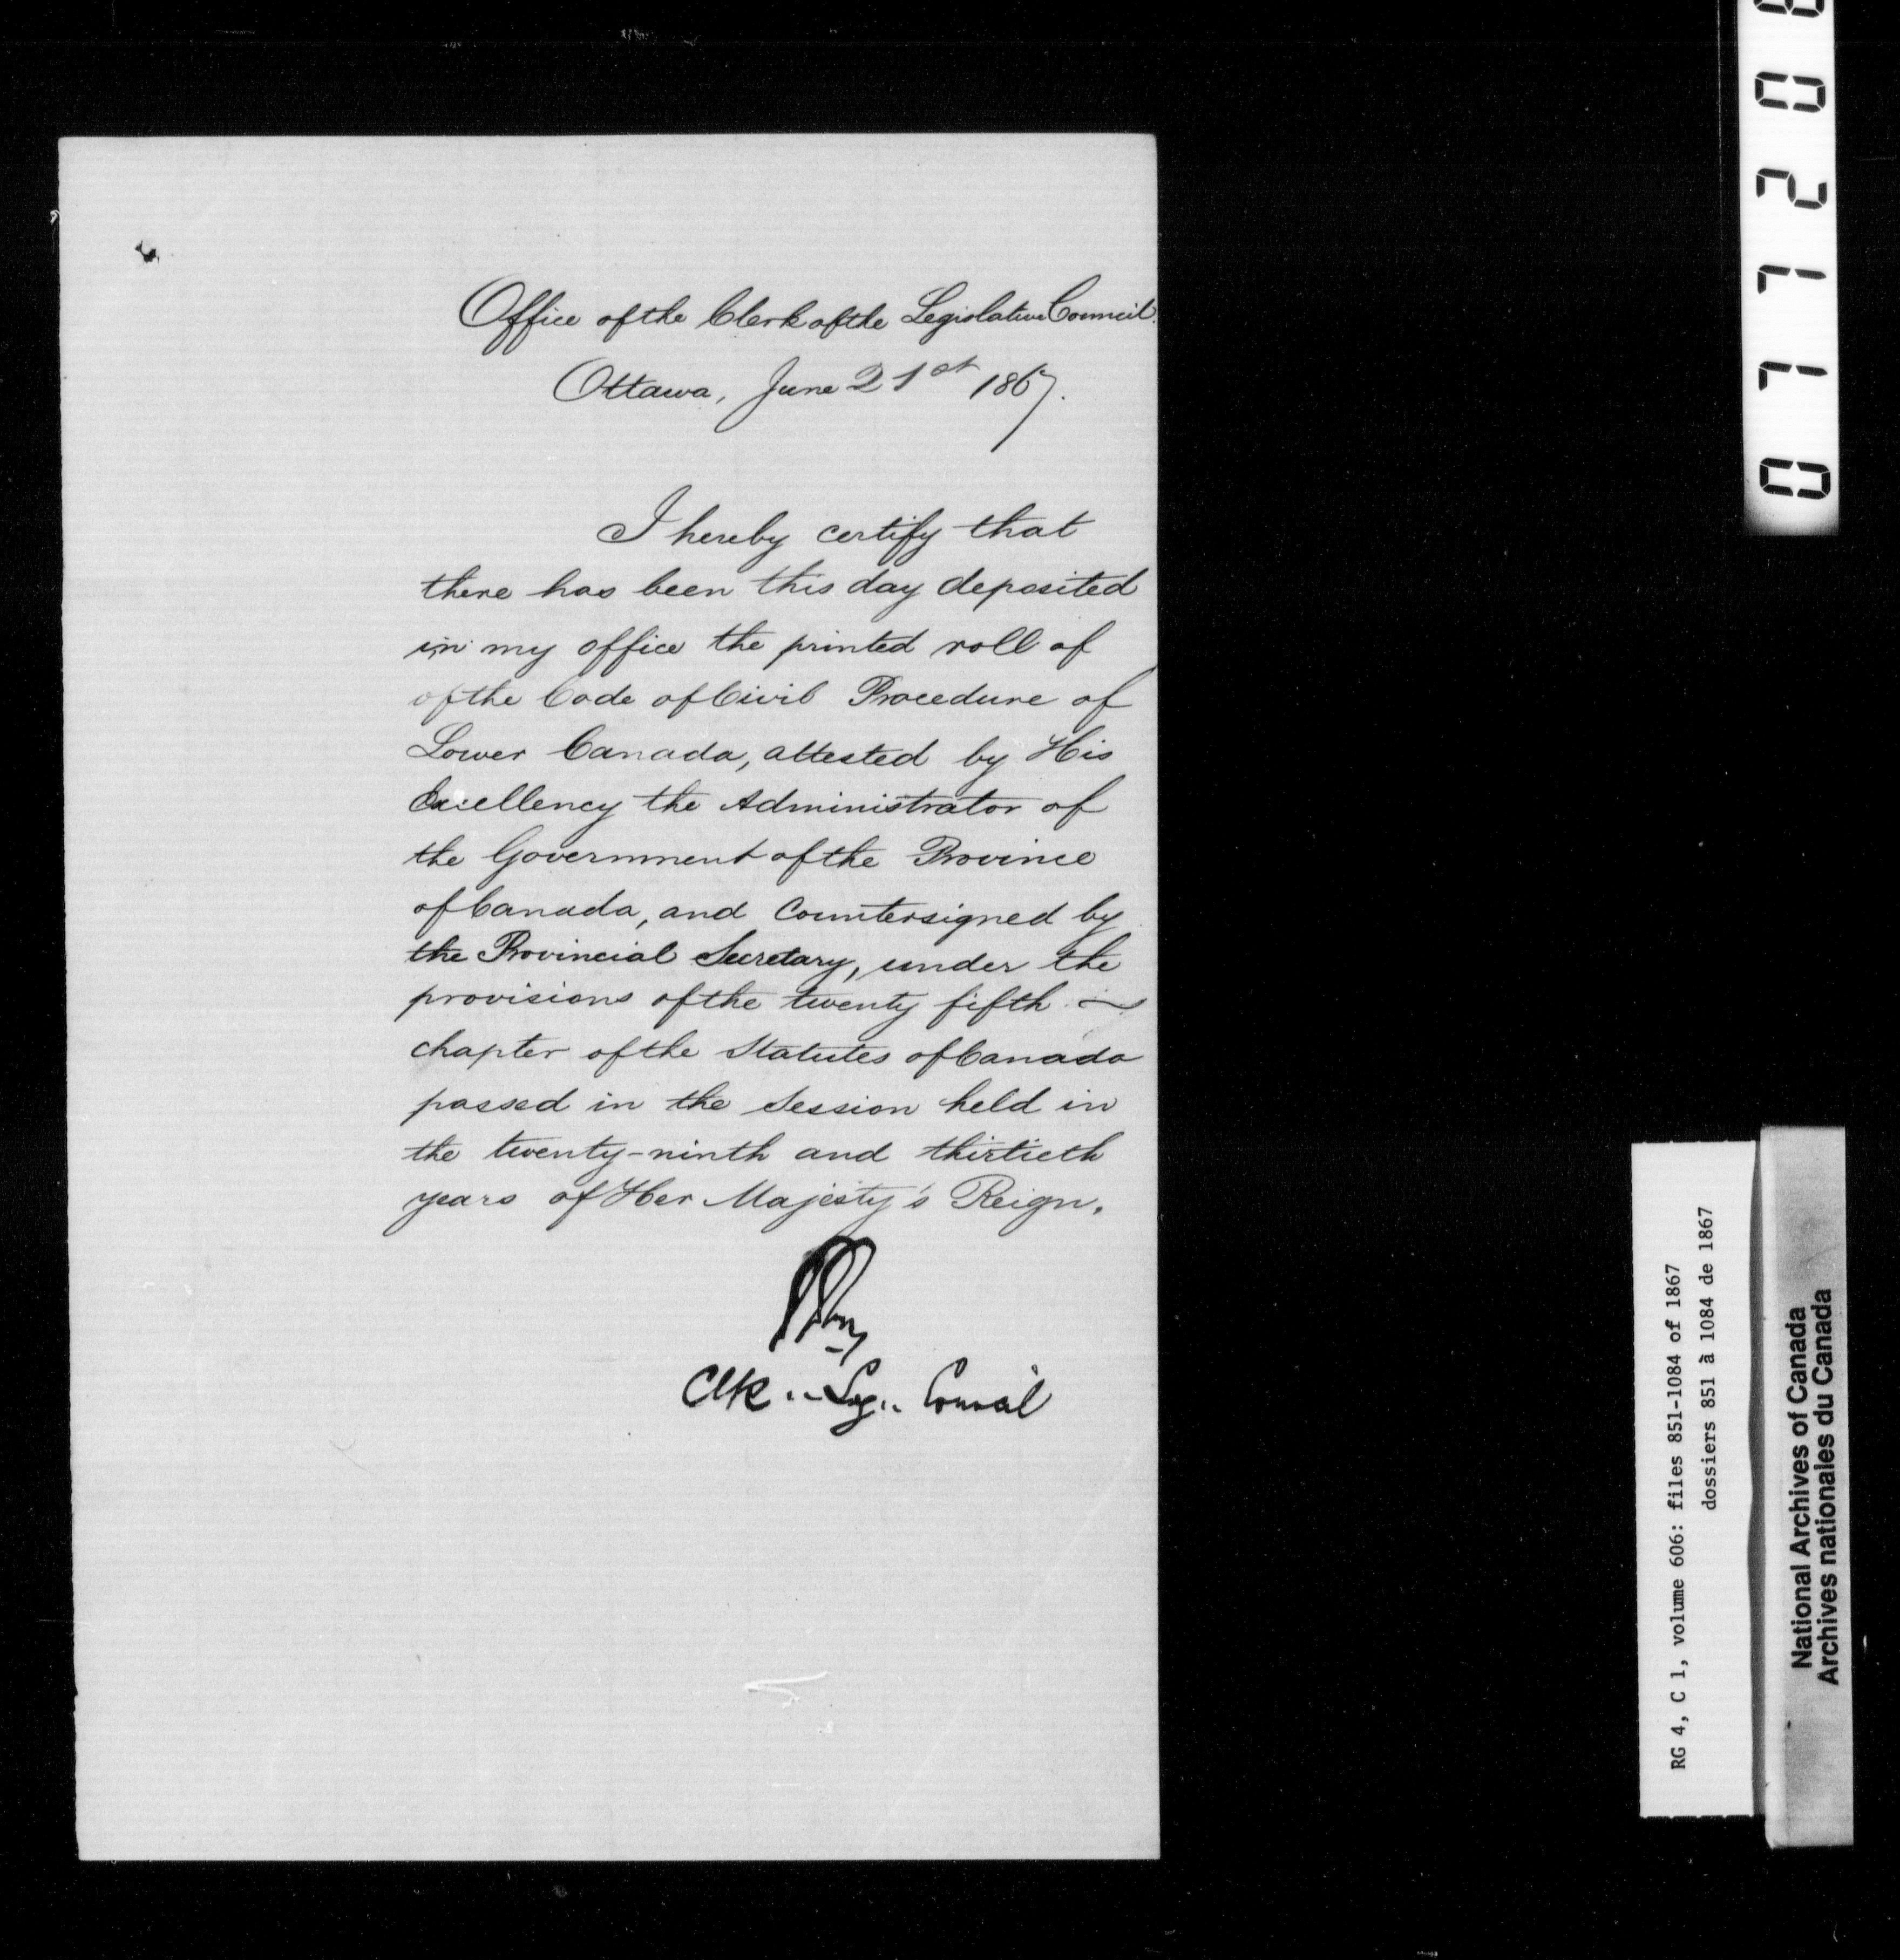 Office of the Clerk of the Legislative Council.
Ottawa, June 21st 1867.
I hereby certify that
there has been this day deposited
in my office the printed roll of
of the Code of Civil Procedure of
Lower Canada, attested by His
Excellency the Administrator of
the Government of the Province
of Canada, and Countersigned by
the Provincial Secretary, under the
provisions of the twenty fifth
chapter of the Statutes of Canada
passed in the Session held in
the twenty-ninth and thirtieth
years of Her Majesty's Reign.
Clk .. Leg.. Council
RG 4, C 1, volume 606: files 851-1084 of 1867
dossiers 851 à 1084 de 1867
National Archives of Canada
Archives nationales du Canada
077208